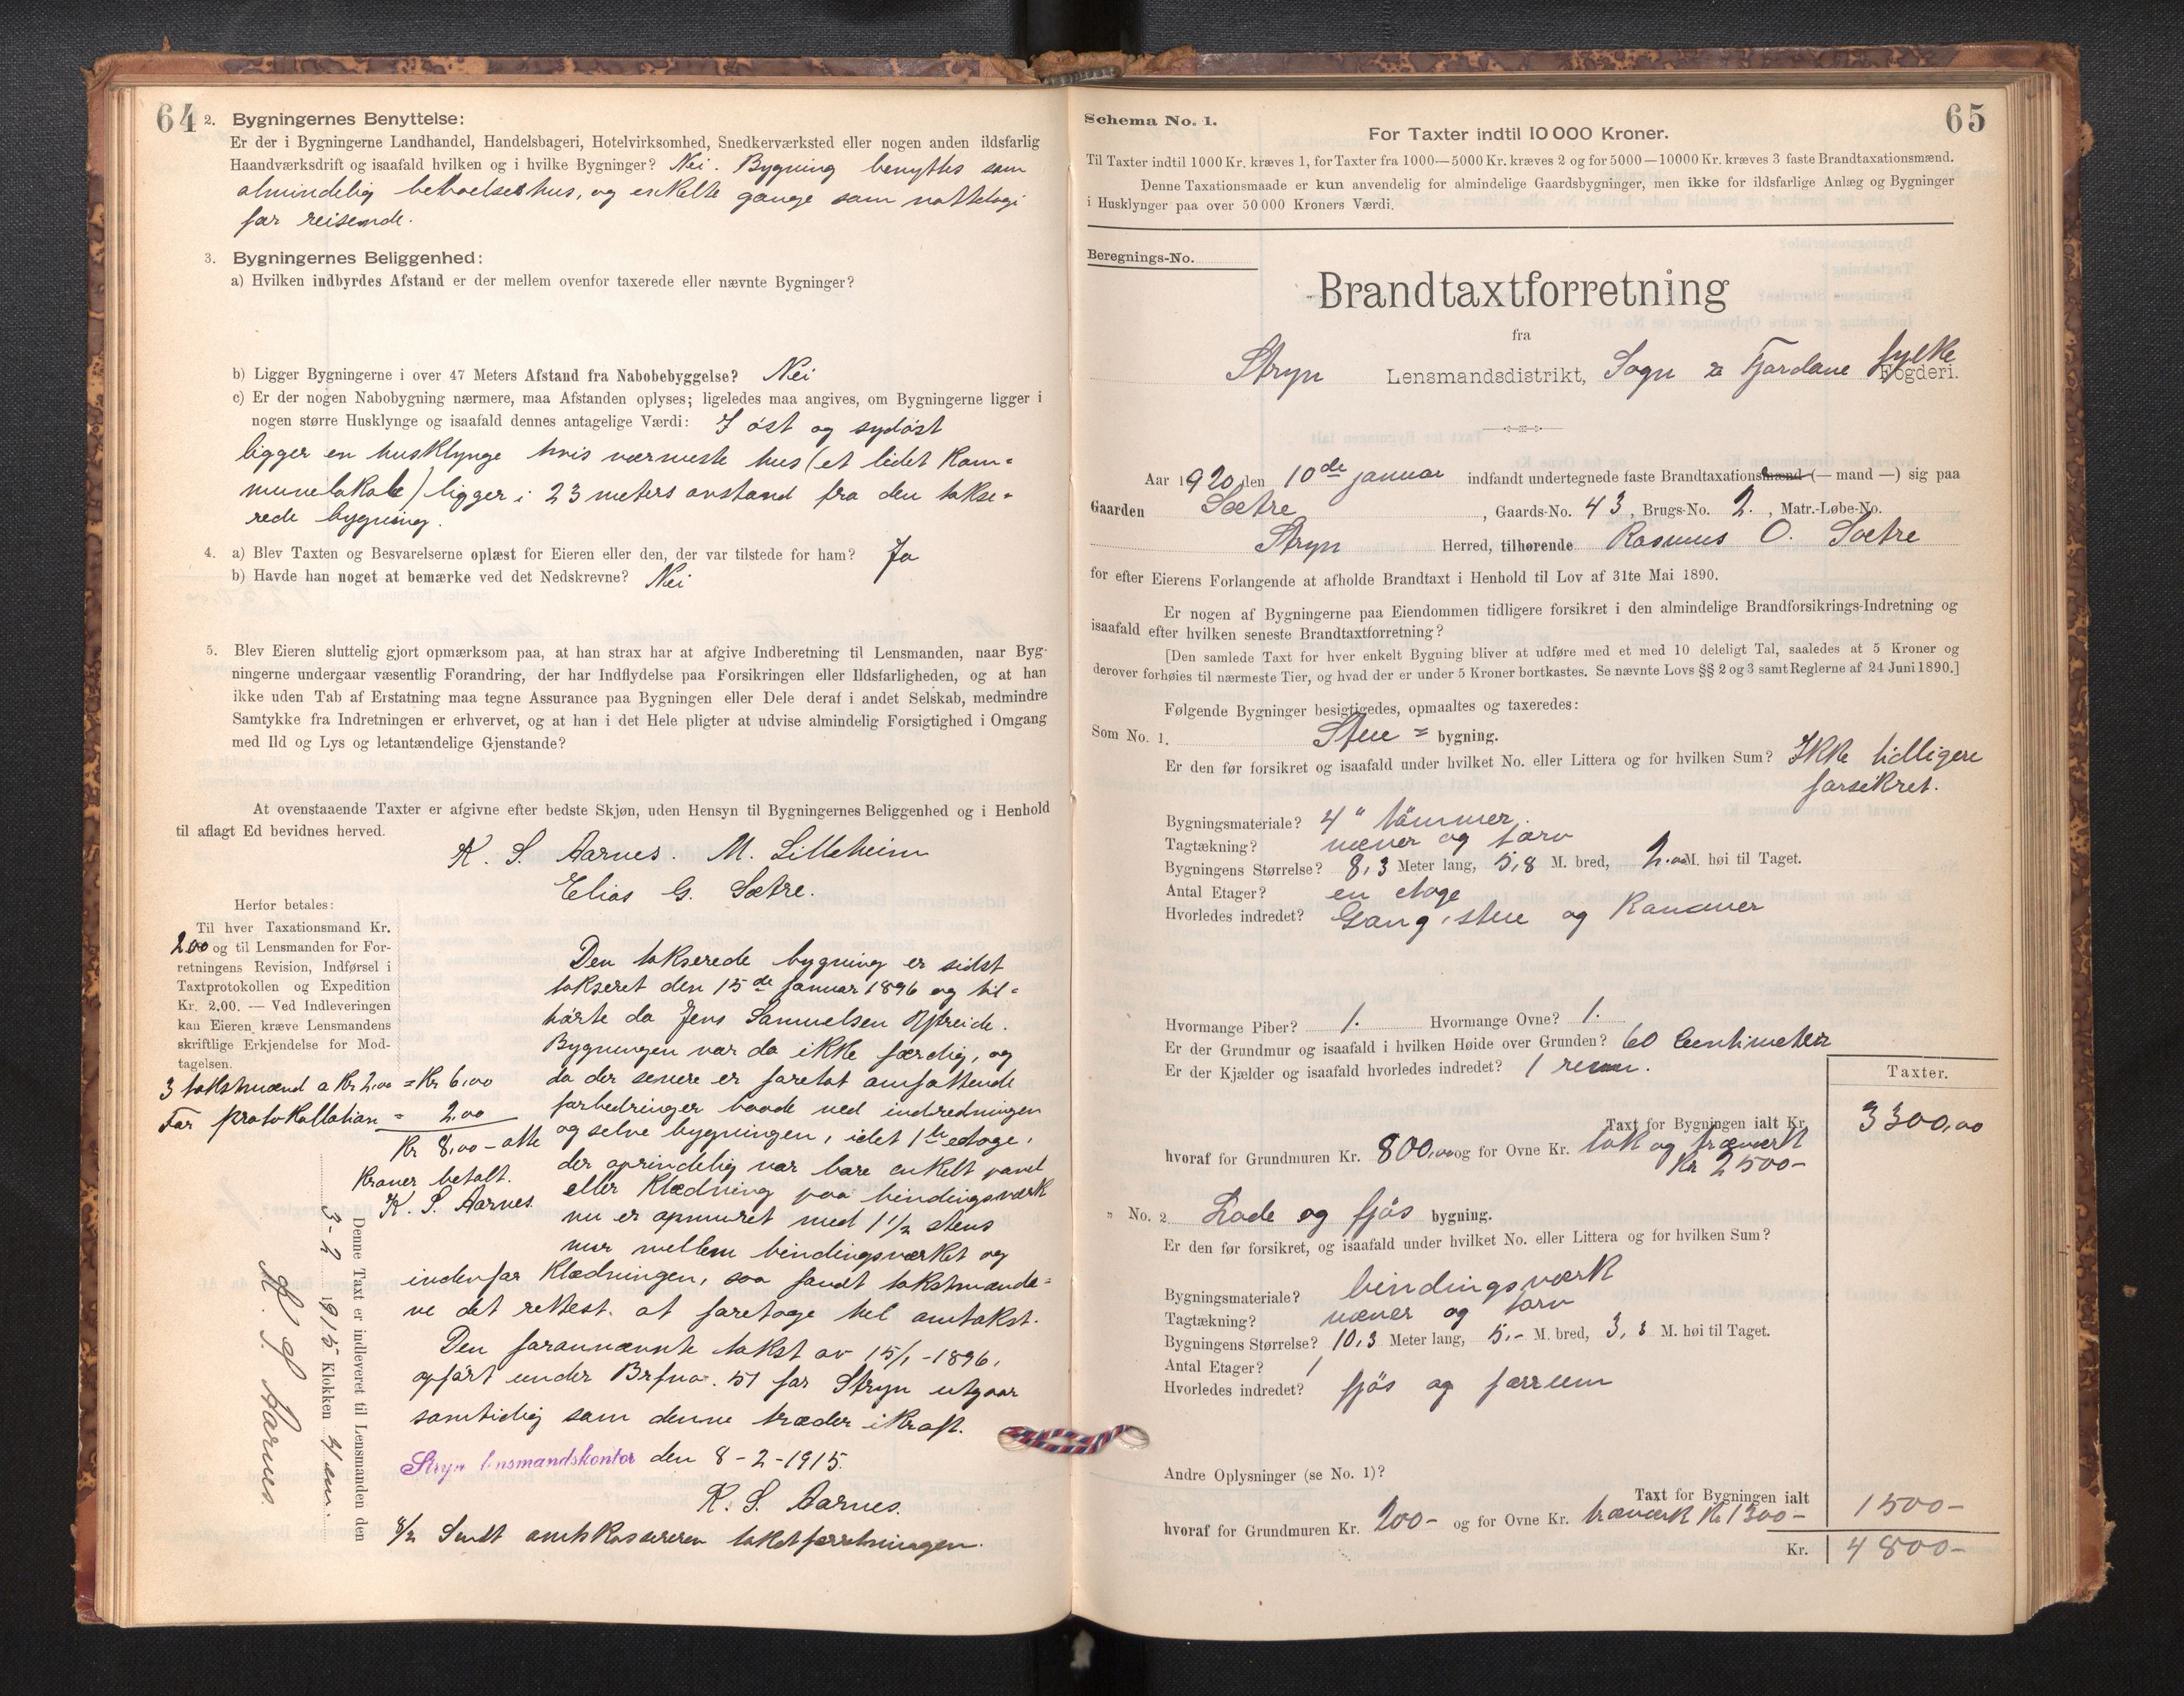 64
2. Bygningernes Benyttelse:
Er der i Bygningerne Landhandel, Handelsbageri, Hotelvirksomhed, Snedkerværksted eller nogen anden ildsfarlig
Haandværksdrift og isaafald hvilken og i hvilke Bygninger? Nei. Bygning benyttes som
almindelig beboelseshus, og enkelte gange som nattelogi
for reisende.
3. Bygningernes Beliggenhed:
a) Hvilken indbyrdes Afstand er der mellem ovenfor taxerede eller nævnte Bygninger?
b) Ligger Bygningerne i over 47 Meters Afstand fra Nabobebyggelse? Nei
c) Er der nogen Nabobygning nærmere, maa Afstanden oplyses; ligeledes maa angives, om Bygningerne ligger i
nogen større Husklynge og isaafald dennes antagelige Værdi: I øst og sydøst
ligger en husklynge hvis nærmeste hus (et lidet kom=
munelokale) ligger i 23 meters avstand fra den takse=
rede bygning.
4. a) Blev Taxten og Besvarelserne oplæst for Eieren eller den, der var tilstede for ham? Ja
b) Havde han noget at bemærke ved det Nedskrevne? Nei
5. Blev Eieren sluttelig gjort opmærksom paa, at han strax har at afgive Indberetning til Lensmanden, naar Byg-
ningerne undergaar væsentlig Forandring, der har Indflydelse paa Forsikringen eller Ildsfarligheden, og at han
ikke uden Tab af Erstatning maa tegne Assurance paa Bygningen eller Dele deraf i andet Selskab, medmindre
Samtykke fra Indretningen er erhvervet, og at han i det Hele pligter at udvise almindelig Forsigtighed i Omgang
med Ild og Lys og letantændelige Gjenstande?
At ovenstaaende Taxter er afgivne efter bedste Skjøn, uden Hensyn til Bygningernes Beliggenhed og i Henhold
til aflagt Ed bevidnes herved.
K. S. Aarnes. M. Lilleheim
Elias G. Sætre.
Herfor betales:
Til hver Taxationsmand Kr.
2.00 og til Lensmanden for For-
retningens Revision, Indførsel i
Taxtprotokollen og Expedition
Kr. 2.00. — Ved Indleveringen
kan Eieren kræve Lensmandens
skriftlige Erkjendelse for Mod-
tagelsen.
3 takstmænd a Kr 2,00 = Kr 6,00
For protokollation = 2.00
Kr 8,00 - otte
kroner betalt.
K. S. Aarnes.
Denne Taxt er indleveret til Lensmanden den
3-2 1915 Klokken 4 em.
K. S. Aarnes.
Den takserede bygning er sidst
takseret den 15de januar 1896 og til=
hørte da Jens Samuelsen
Bygningen var da ikke færdig, og
da der senere er foretat omfattende
forbedringer baade ved indredningen
og selve bygningen, idet 1ste etage,
der oprindelig var bare enkelt panel
eller klædning paa bindingsværk
nu er opmuret med 1 1/2 stens
mur mellem bindingsværket og
indenfor klædningen, saa fandt takstmænde=
ne det rettest at foretage hel omtakst.
Den forannævnte takst av 15/1-1896,
opført under Brfno. 51 for Stryn utgaar
samtidig som denne træder i kraft.
Stryn lensmandskontor den 8-2-1915.
K. S. Aarnes.
8/2 Sendt amtskassereren takstforretningen.
65
Schema No. 1.
For Taxter indtil 10 000 Kroner.
Til Taxter indtil 1000 Kr. kræves 1, for Taxter fra 1000—5000 Kr. kræves 2 og for 5000—10000 Kr. kræves 3 faste Brandtaxationsmænd.
Denne Taxationsmaade er kun anvendelig for almindelige Gaardsbygninger, men ikke for ildsfarlige Anlæg og Bygninger
i Husklynger paa over 50 000 Kroners Værdi.
Beregnings-No.
Brandtaxtforretning
fra
Stryn Lensmandsdistrikt, Sogn & Fjordane fylke Fogderi.
Aar 1920, den 10de januar indfandt undertegnede faste Brandtaxationsmænd (— mand —) sig paa
Gaarden Sætre, Gaards-No. 43, Brugs-No. 2., Matr.-Løbe-No.
Stryn Herred, tilhørende Rasmus O. Sætre
for efter Eierens Forlangende at afholde Brandtaxt i Henhold til Lov af 31te Mai 1890.
Er nogen af Bygningerne paa Eiendommen tidligere forsikret i den almindelige Brandforsikrings-Indretning og
isaafald efter hvilken seneste Brandtaxtforretning?
[Den samlede Taxt for hver enkelt Bygning bliver at udføre med et med 10 deleligt Tal, saaledes at 5 Kroner og
derover forhøies til nærmeste Tier, og hvad der er under 5 Kroner bortkastes. Se nævnte Lovs §§ 2 og 3 samt Reglerne af 24 Juni 1890.]
Følgende Bygninger besigtigedes, opmaaltes og taxeredes:
Som No. 1. Stue = bygning.
Er den før forsikret og isaafald under hvilket No. eller Littera og for hvilken Sum? Ikke tidligere
forsikret.
Bygningsmateriale? 4" tømmer.
Tagtækning? næver og torv
Bygningens Størrelse? 8,3 Meter lang, 5,8 M. bred, 2.00 M. høi til Taget.
Antal Etager? en etage
Hvorledes indredet? Gang, stue og kammer
Hvormange Piber? 1. Hvormange Ovne? 1.
Er der Grundmur og isaafald i hvilken Høide over Grunden? 60 Centimeter
Er der Kjælder og isaafald hvorledes indredet? 1 rum.
Taxter.
Taxt for Bygningen ialt Kr. 3300,00
hvoraf for Grundmuren Kr. 800,00 og for Ovne Kr. tak og træværk
Kr 2500-
" No. 2 Lade og fjøs bygning.
Er den før forsikret, og isaafald under hvilket No. eller Littera og for hvilken Sum?
Bygningsmateriale? bindingsværk
Tagtækning? næver og torv
Bygningens Størrelse? 10,3 Meter lang, 5,- M. bred, 3,3 M. høi til Taget.
Antal Etager? 1
Hvorledes indredet? fjøs og forrum
Andre Oplysninger (se No. 1)?
Taxt for Bygningen ialt 1500-
hvoraf for Grundmuren Kr. 200- og for Ovne Kr. træværk Kr 1300-
Kr. 4800-